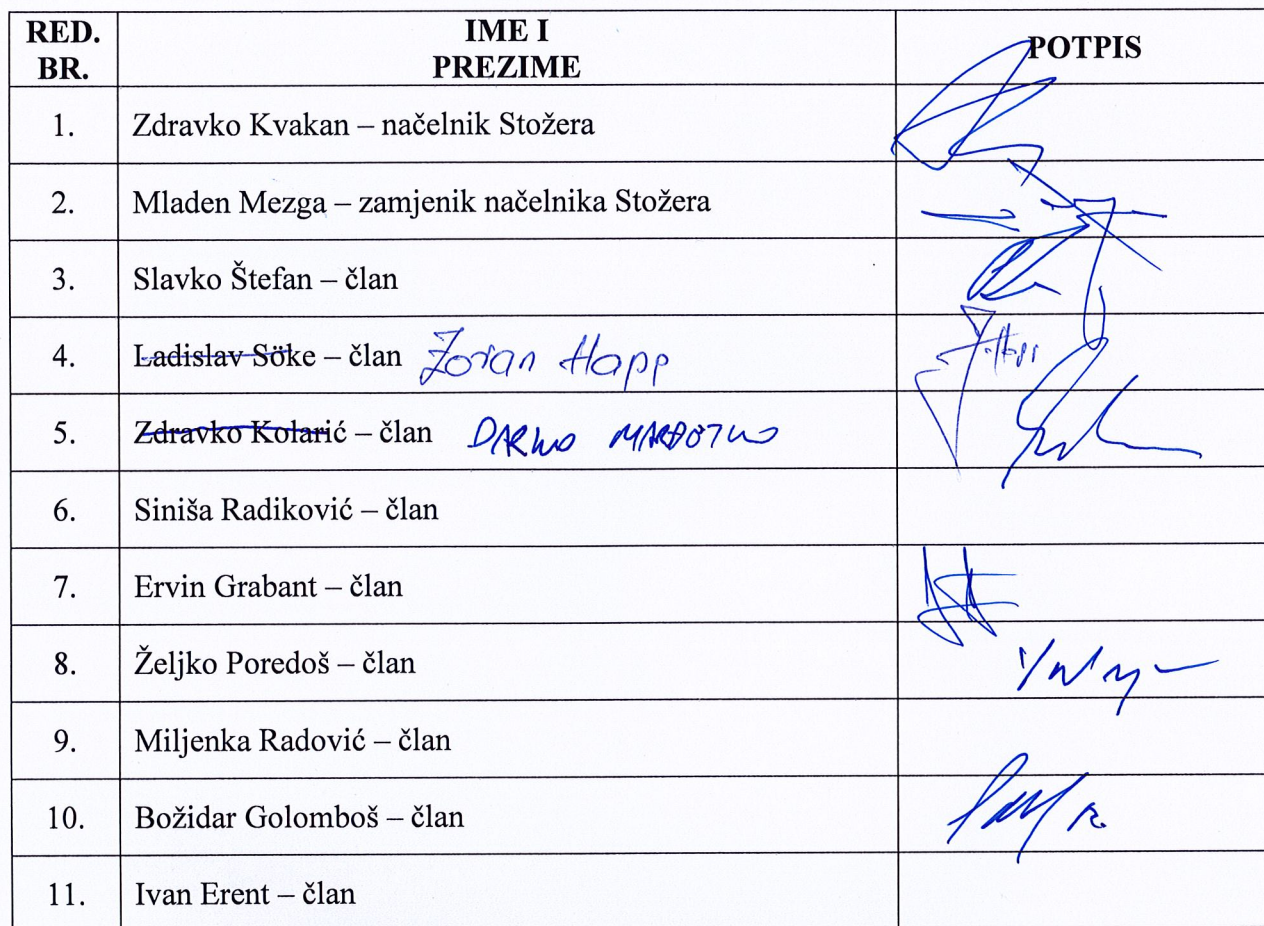 RED. BR.
IME I PREZIME
POTPIS
1. Zdravko Kvakan – načelnik Stožera
2. Mladen Mezga – zamjenik načelnika Stožera
3. Slavko Štefan – član
4. Ladislav Söke – član Zoran Happ
5. Zdravko Kolarić – član DARKO
6. Siniša Radiković – član
7. Ervin Grabant – član
8. Željko Poredoš – član
9. Miljenka Radović – član
10. Božidar Golomboš – član
11. Ivan Erent – član